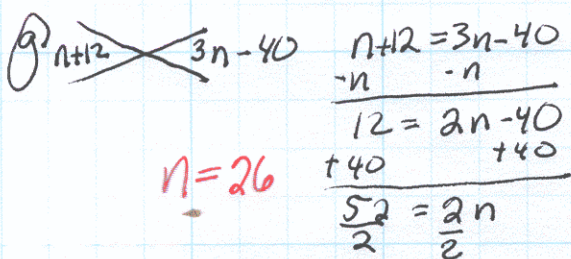 g n+12 3n-40
n=26
n+12 = 3n-40
-n -n
12 = 2n-40
+40 +40
52 = 2n
2 2